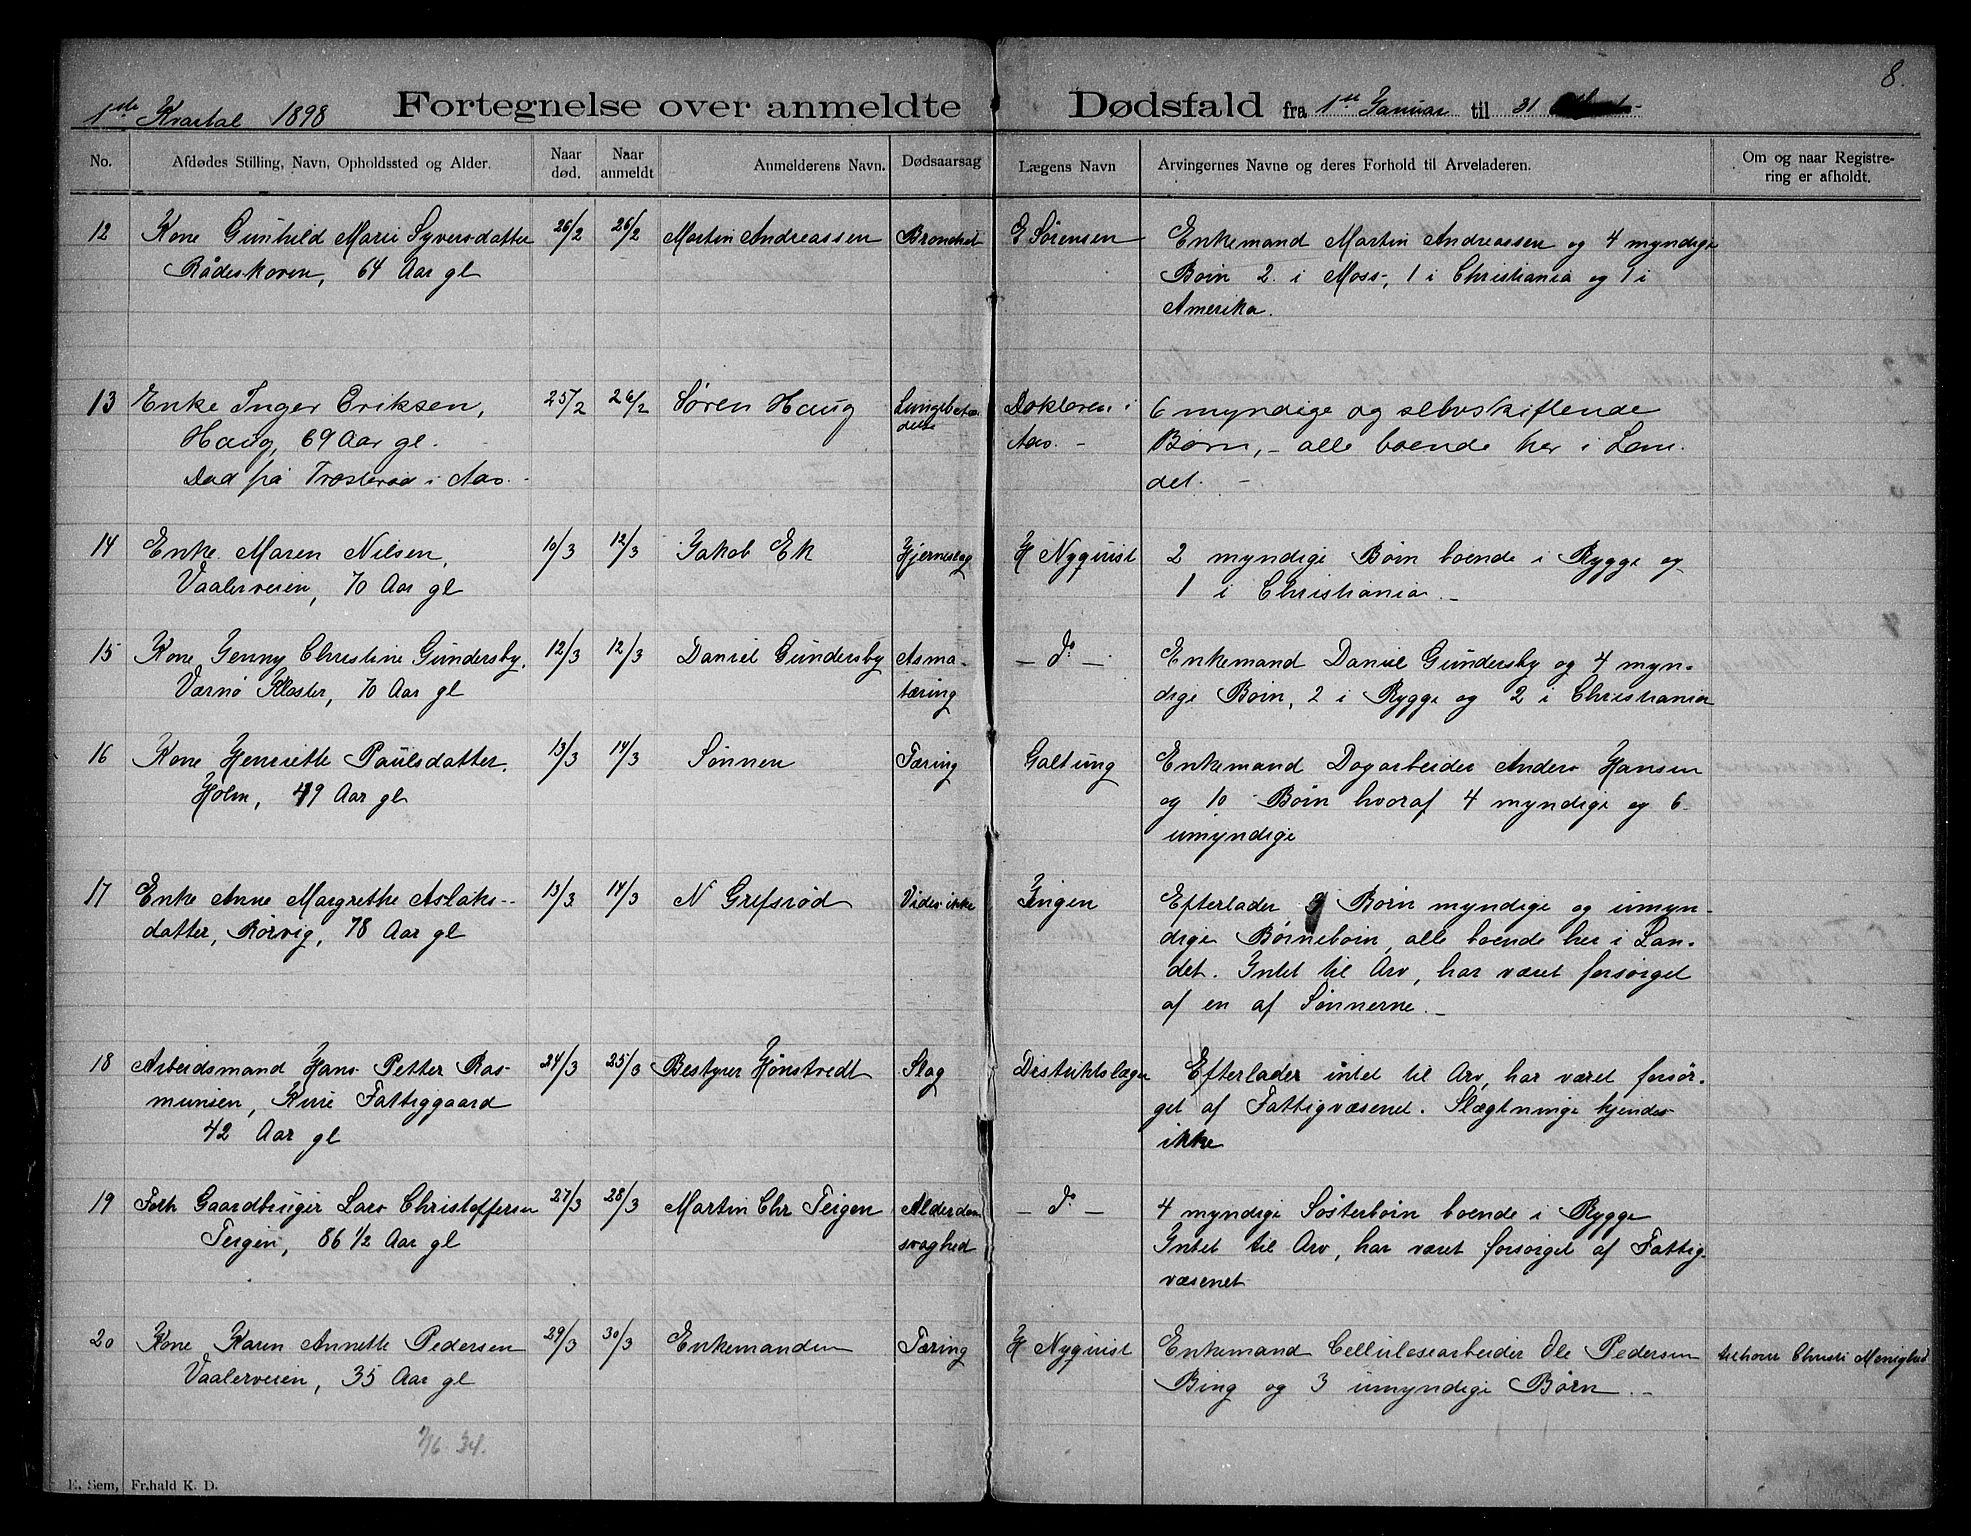 8.
1ste Kvartal 1898 Fortegnelse over anmeldte Dødsfald fra 1ste Januar til 31
No. Afdødes Stilling, Navn, Opholdssted og Alder. Naar død. Naar anmeldt Anmelderens Navn. Dødsaarsag Lægens Navn Arvingernes Navne og deres Forhold til Arveladeren. Om og naar Registrering er afholdt.
12 Kone Gunhild Marie Syversdatter 26/2 26/2 Martin Andreassen Bronchit G Sørensen Enkemand Martin Andreassen og 4 myndige
Rådeskoven, 64 Aar gl Børn 2 i Moss, 1 i Christiania og 1 i
Amerika.
13 Enke Inger Eriksen, 25/2 26/2 Søren Haug Lungebetæn Doktoren i 6 myndige og selvskiftende
Haug, 69 Aar gl. delse Aas. - Børn, - alle boende her i Lan-
Død på Træsterød i Aas. - det. -
14 Enke Maren Nilsen, 10/3 12/3 Jakob Ek Hjerneslag H Nyquist 2 myndige Børn boende i Rygge og
Vaalerveien, 70 Aar gl 1 i Christiania. -
15 Kone Jenny Christine Gundersby, 12/3 12/3 Daniel Gundersby Asma- - do - Enkemand Daniel Gundersby og 4 myn-
Værnø Kloster, 70 Aar gl tæring dige Børn, 2 i Rygge og 2 i Christiania
16 Kone Henriette Paulsdatter, 13/3 14/3 Sønnen Tæring Galtung Enkemand Dagarbeider Anders Hansen
Holm, 49 Aar gl og 10 Børn hvoraf 4 myndige og 6
umyndige
17 Enke Anne Margrethe Aslaks- 13/3 14/3 N Grefsrød Vides ikke Ingen Efterlader 9 Børn myndige og umyn-
datter, Rørvig, 78 Aar gl dige Børnebørn, alle boende her i Lan-
det. Intet til Arv, har været forsørget
af en af Sønnerne. -
18 Arbeidsmand Hans Petter Ras- 24/3 25/3 Bestyrer Hønstvedt Slag Distriktslægen Efterlader intet til Arv, har været forsør-
munsen, Kure Fattiggaard get af Fattigvæsenet. Slægtninge kjendes
42 Aar gl ikke
19 Forh Gaardbruger Lars Christoffersen 27/3 28/3 Martin Chr Teigen Alderdom - do - 4 myndige Søsterbørn boende i Rygge
Teigen, 86 1/2 Aar gl svaghed Intet til Arv, har været forsørget af Fattig-
væsenet
20 Kone Karen Annette Pedersen 29/3 30/3 Enkemanden Tæring H Nyquist Enkemand Cellulosearbeider Ole Pedersen tilhører Christi Menighed
Vaalerveien, 35 Aar gl Bing og 3 umyndige Børn. -
7/6 34.
E. Sem, Fr.hald K. D.